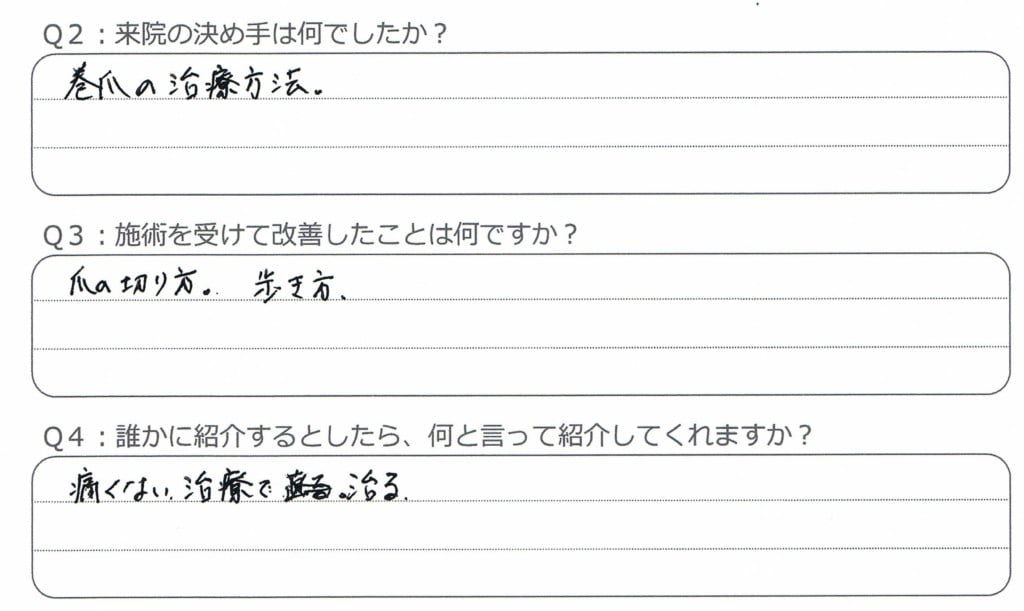 Q2：来院の決め手は何でしたか？
巻爪の治療方法。
Q3：施術を受けて改善したことは何ですか？
爪の切り方。 歩き方、
Q4：誰かに紹介するとしたら、何と言って紹介してくれますか？
痛くない、治療で 治る、